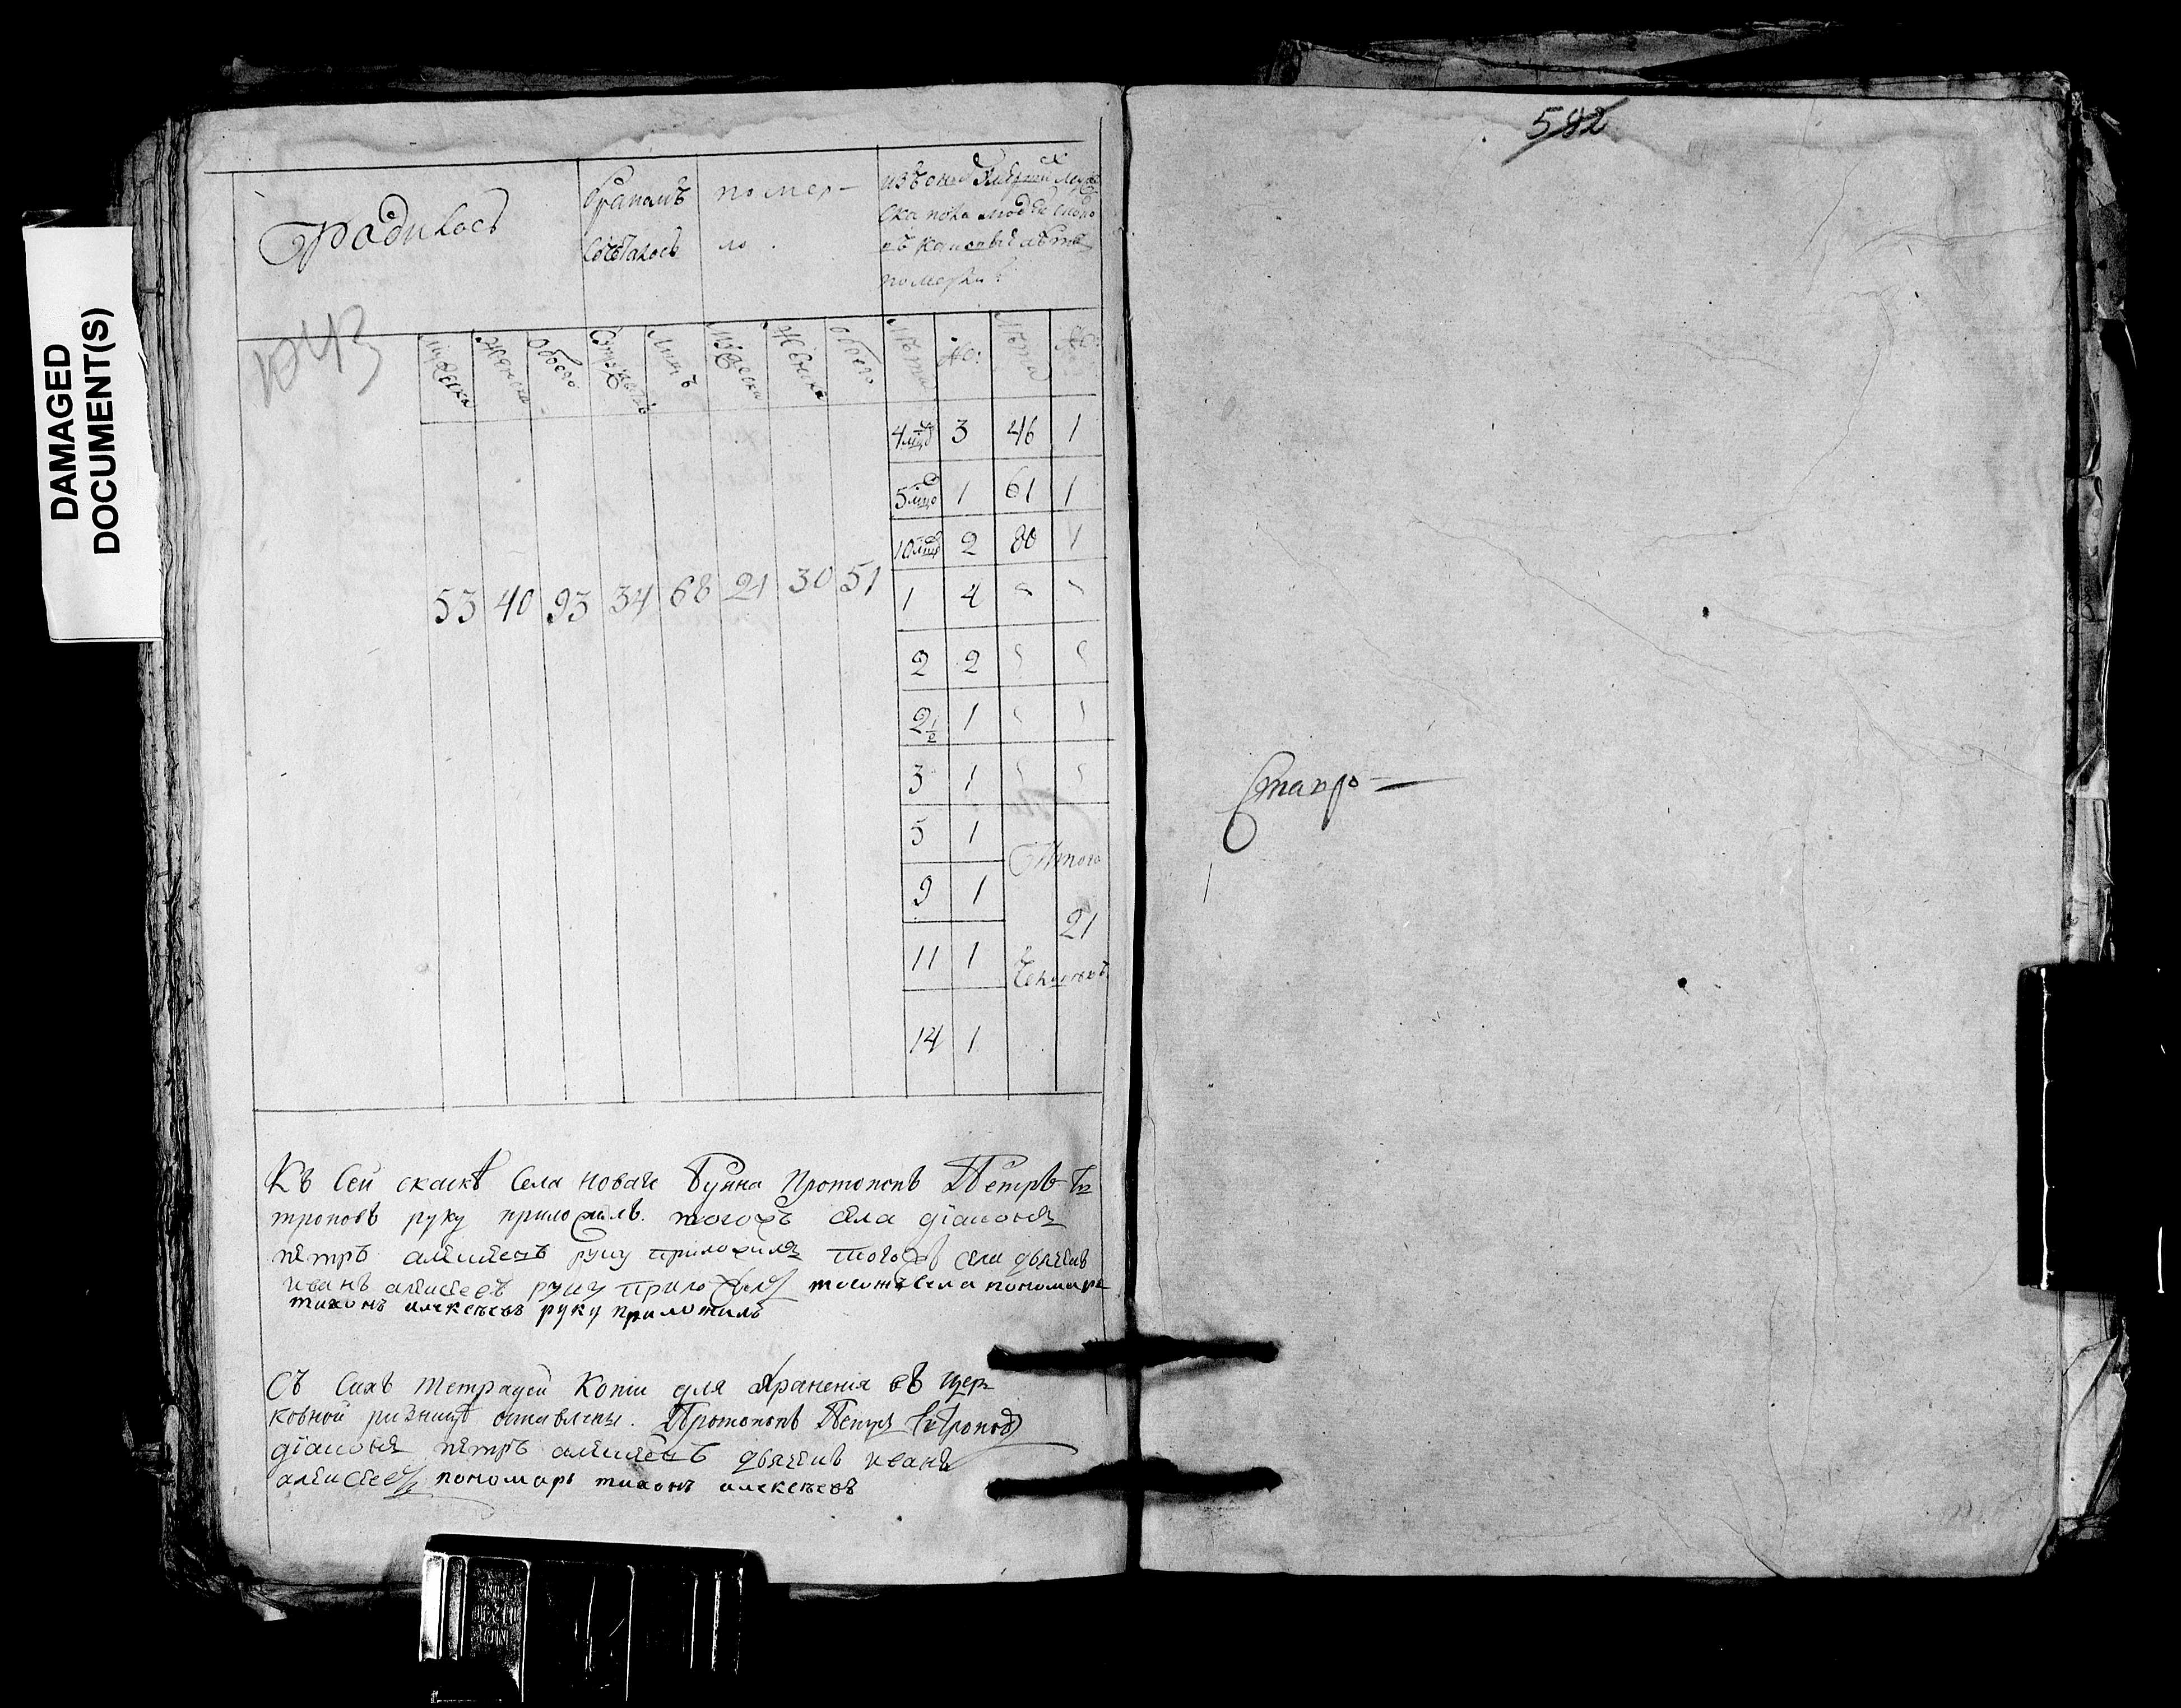 DAMAGED
DOCUMENT(S)
582
Родилось
бракомъ
сочеталось
помер-
ло.
изъ оных
ска пола
померли:
мужеска
женска
обоего
Супружествъ
Лицъ
мужеска
женска
обоего
Лѣта
Чс:
Лѣта
Чс:
53 40 93 34 68 21 30 51
4 мцов 3 46 1
5 мцов 1 61 1
10 мцов 2 80 1
1 4
2 2
2 1/2 1
3 1
5 1
Итого
9 1
21
11 1
Человекъ
14 1
Къ сей скаскѣ села новаго Буяна Протопопъ Петръ Ми
троповъ руку приложилъ. тогожъ села діаконъ
петръ алексѣевъ руку приложилъ тогожъ села дьячекъ
иванъ алексѣевъ руку приложилъ тогожъ села пономарь
тихонъ алексѣевъ руку приложилъ
Съ сихъ тетрадей копіи для храненія въ цер-
ковной ризницѣ оставлены. Протопопъ Петръ Митроповъ
діаконъ петръ алексѣевъ дьячекъ иванъ
алексѣевъ пономарь тихонъ алексѣевъ
Ставро-